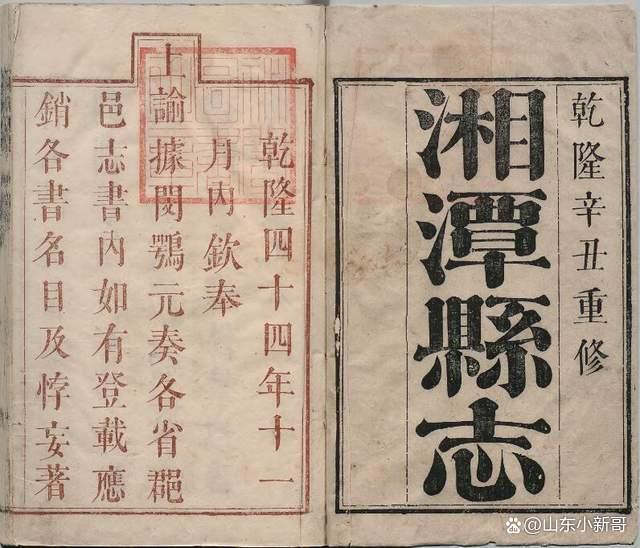 乾隆辛丑重修
湘潭縣志
乾隆四十四年十一
月內欽奉
上諭據閔鶚元奏各省郡
邑志書內如有登載應
銷各書名目及悖妄著
山东小新哥